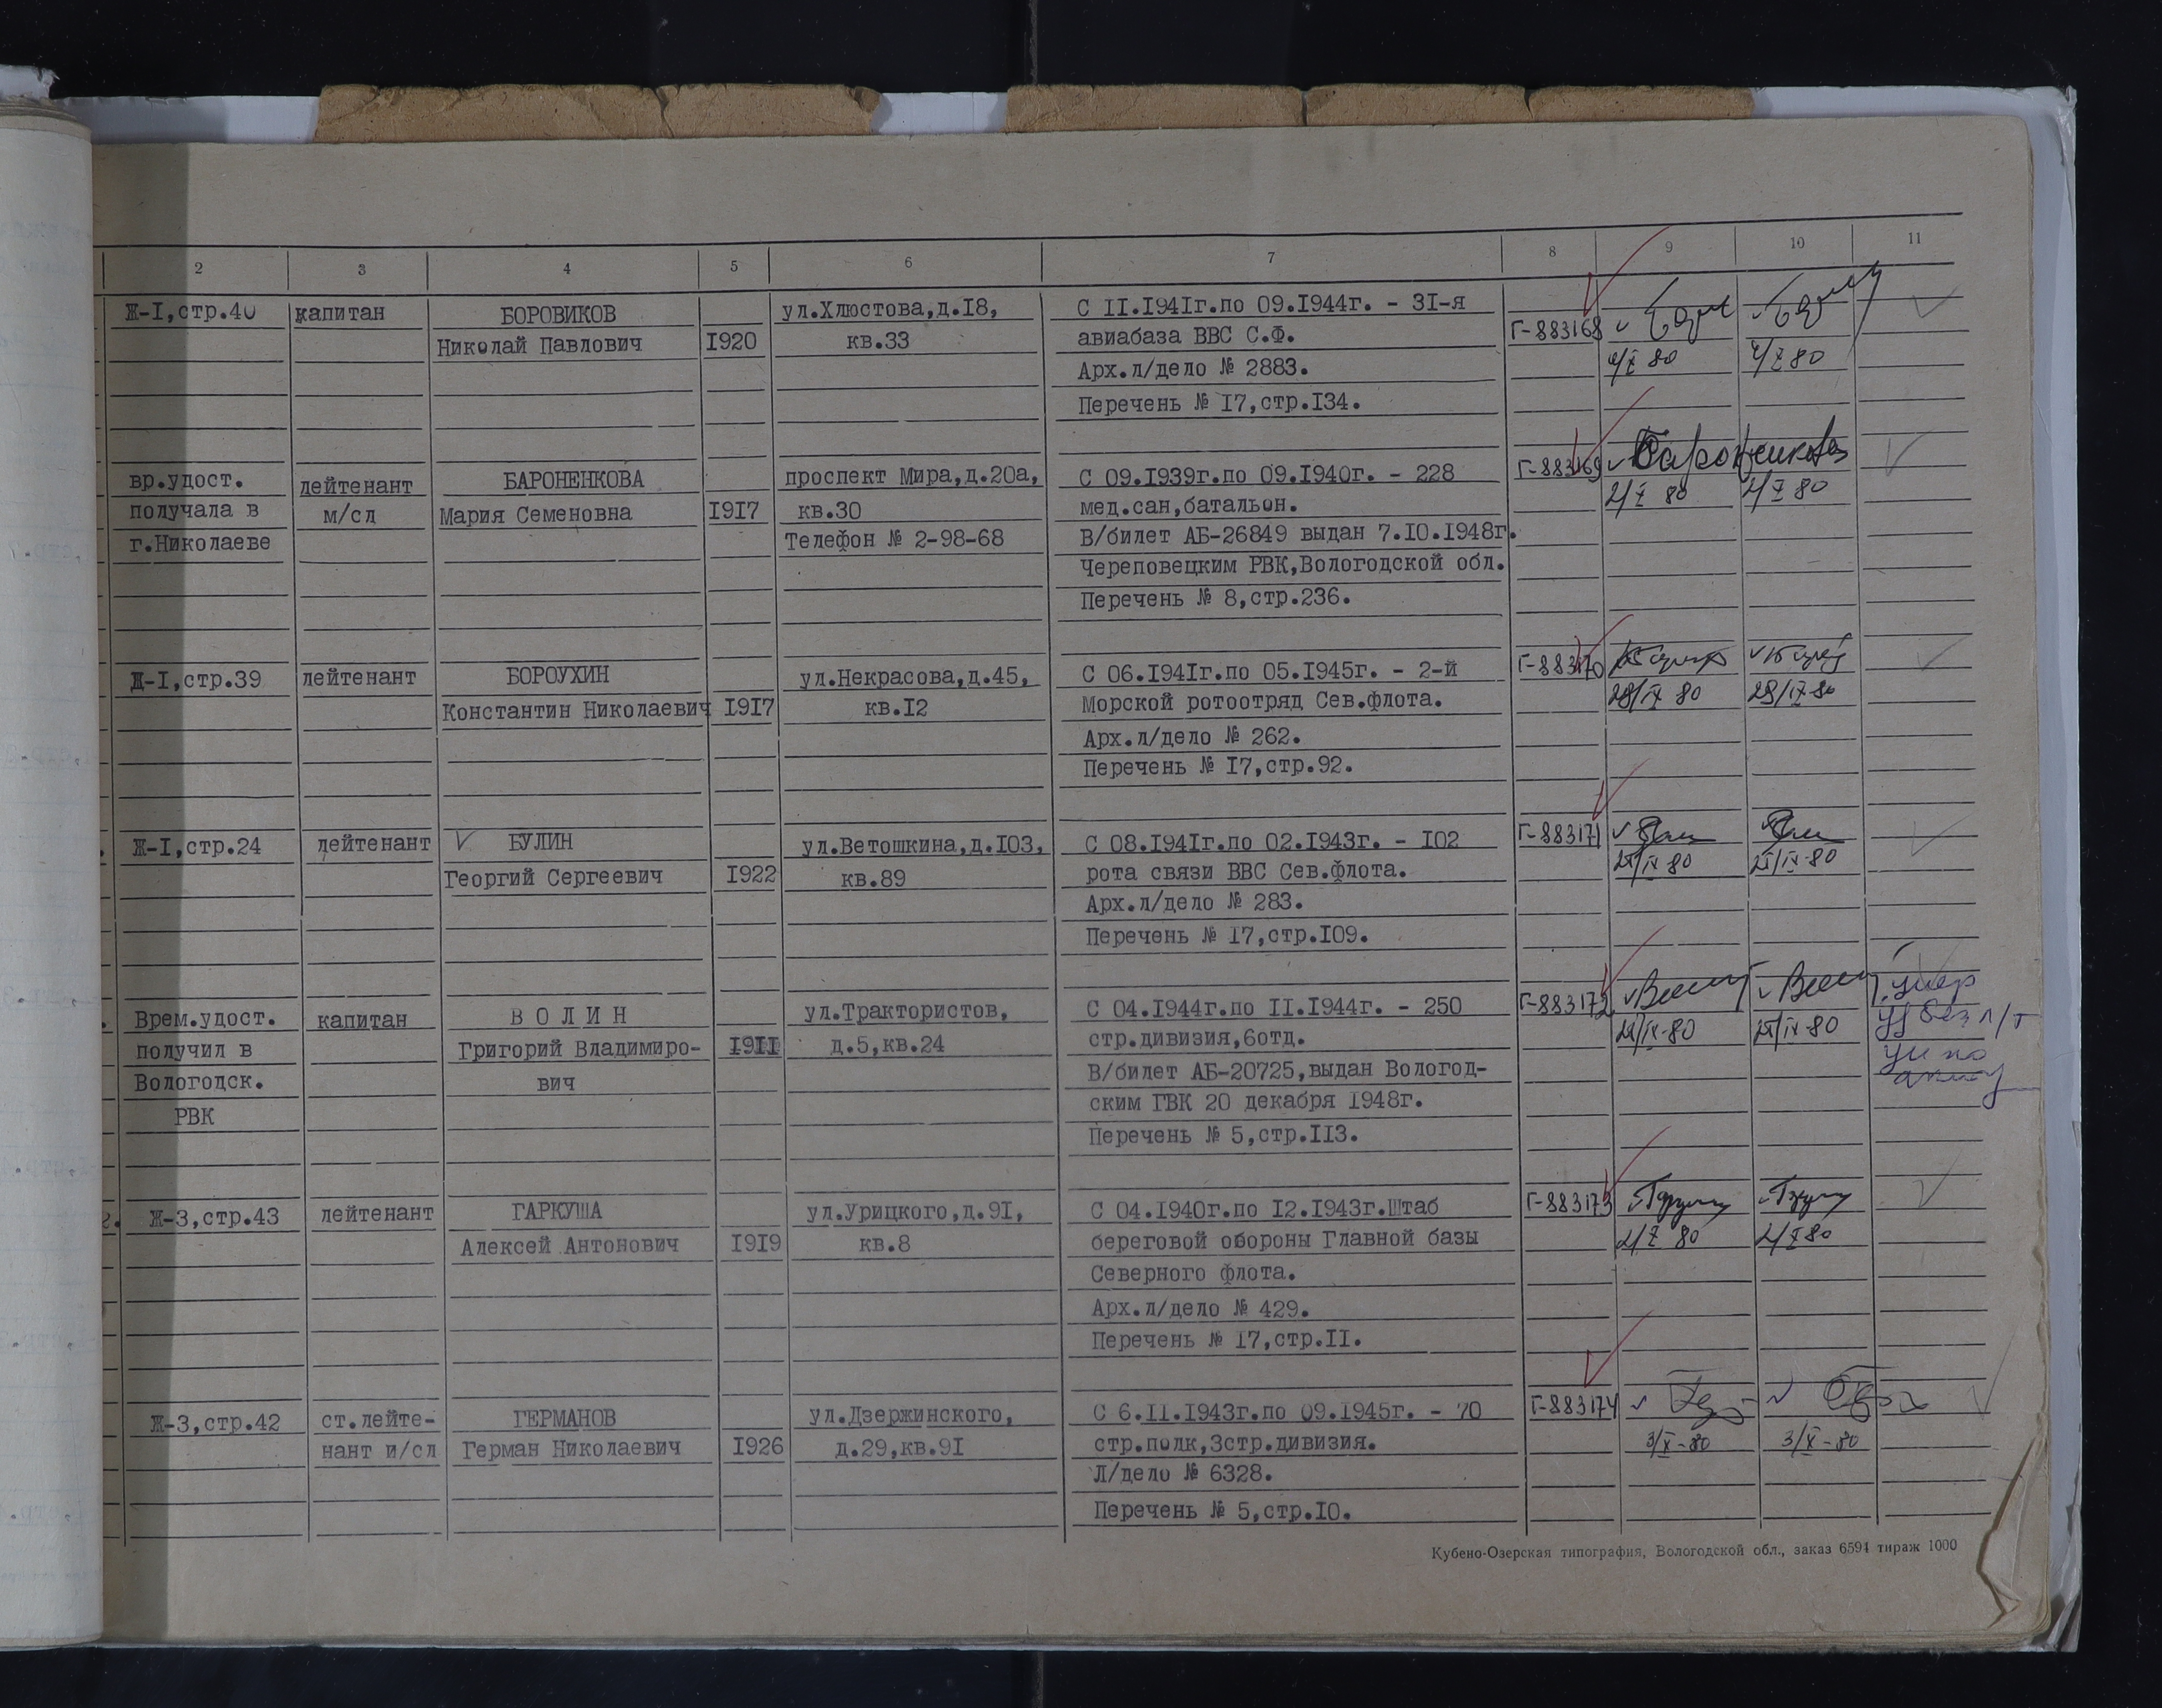 2 3 4 5 6 7 8 9 10 11
Ж-I,стр.40 капитан БОРОВИКОВ ул.Хлюстова,д.I8, С II.I94Iг.по 09.I944г. - 3I-я
Николай Павлович I920 кв.33 авиабаза ВВС С.Ф. Г-883168
Арх.л/дело № 2883. 4/X 80 4/X 80
Перечень № I7,стр.I34.
вр.удост. лейтенант БАРОНЕНКОВА проспект Мира,д.20а, С 09.I939г.по 09.I940г. - 228 Г-883169 Бароненкова
получала в м/сл Мария Семеновна I9I7 кв.30 мед.сан,батальон. 2/X 80 2/X 80
г.Николаеве Телефон № 2-98-68 В/билет АБ-26849 выдан 7.I0.I948г.
Череповецким РВК,Вологодской обл.
Перечень № 8,стр.236.
Д-I,стр.39 лейтенант БОРОУХИН ул.Некрасова,д.45, С 06.I94Iг.по 05.I945г. - 2-й Г-883170
Константин Николаевич I9I7 кв.I2 Морской ротоотряд Сев.флота. 29/IX 80 29/IX-80
Арх.л/дело № 262.
Перечень № I7,стр.92.
Ж-I,стр.24 лейтенант БУЛИН ул.Ветошкина,д.I03, С 08.I94Iг.по 02.I943г. - I02 Г-883171
Георгий Сергеевич I922 кв.89 рота связи ВВС Сев.флота.
Арх.л/дело № 283.
Перечень № I7,стр.I09.
Врем.удост. капитан В О Л И Н ул.Трактористов, С 04.I944г.по II.I944г. - 250 Г-883172 умер
получил в Григорий Владимиро- I9II д.5,кв.24 стр.дивизия,6отд. уд без л/т
Вологодск. вич В/билет АБ-20725,выдан Вологод-
РВК ским ГВК 20 декабря I948г.
Перечень № 5,стр.II3.
Ж-3,стр.43 лейтенант ГАРКУША ул.Урицкого,д.9I, С 04.I940г.по I2.I943г.Штаб Г-883173
Алексей Антонович I9I9 кв.8 береговой обороны Главной базы 2/X 80 2/X 80
Северного флота.
Арх.л/дело № 429.
Перечень № I7,стр.II.
Ж-3,стр.42 ст.лейте- ГЕРМАНОВ ул.Дзержинского, С 6.II.I943г.по 09.I945г. - 70 Г-883174
нант и/сл Герман Николаевич I926 д.29,кв.9I стр.полк,3стр.дивизия. 3/X-80 3/X-80
Л/дело № 6328.
Перечень № 5,стр.I0.
Кубено-Озерская типография, Вологодской обл., заказ 6594 тираж 1000